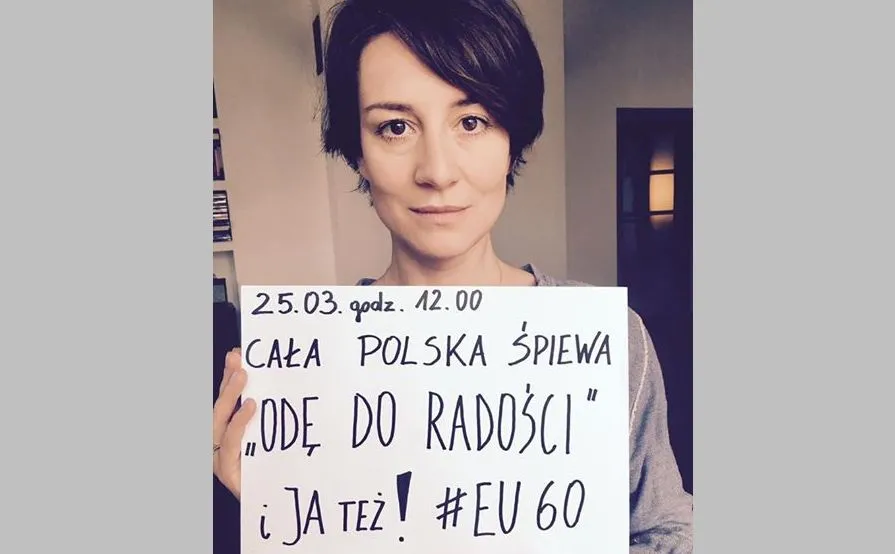 25.03. godz. 12.00
CAŁA POLSKA ŚPIEWA
„ODĘ DO RADOŚCI"
i JA TEŻ! #EU60